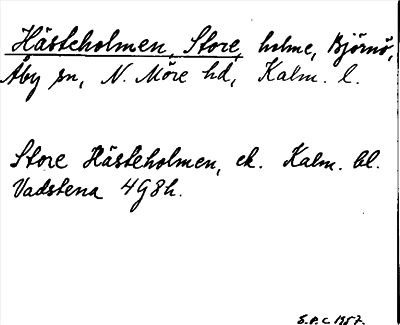 Hästeholmen, Store, holme, Björnö,
Åby sn, N. Möre hd, Kalm. l.
Store Hästeholmen, ek. Kalm. bl.
Vadstena 4 g 8 h.
S.P.C. 1957.